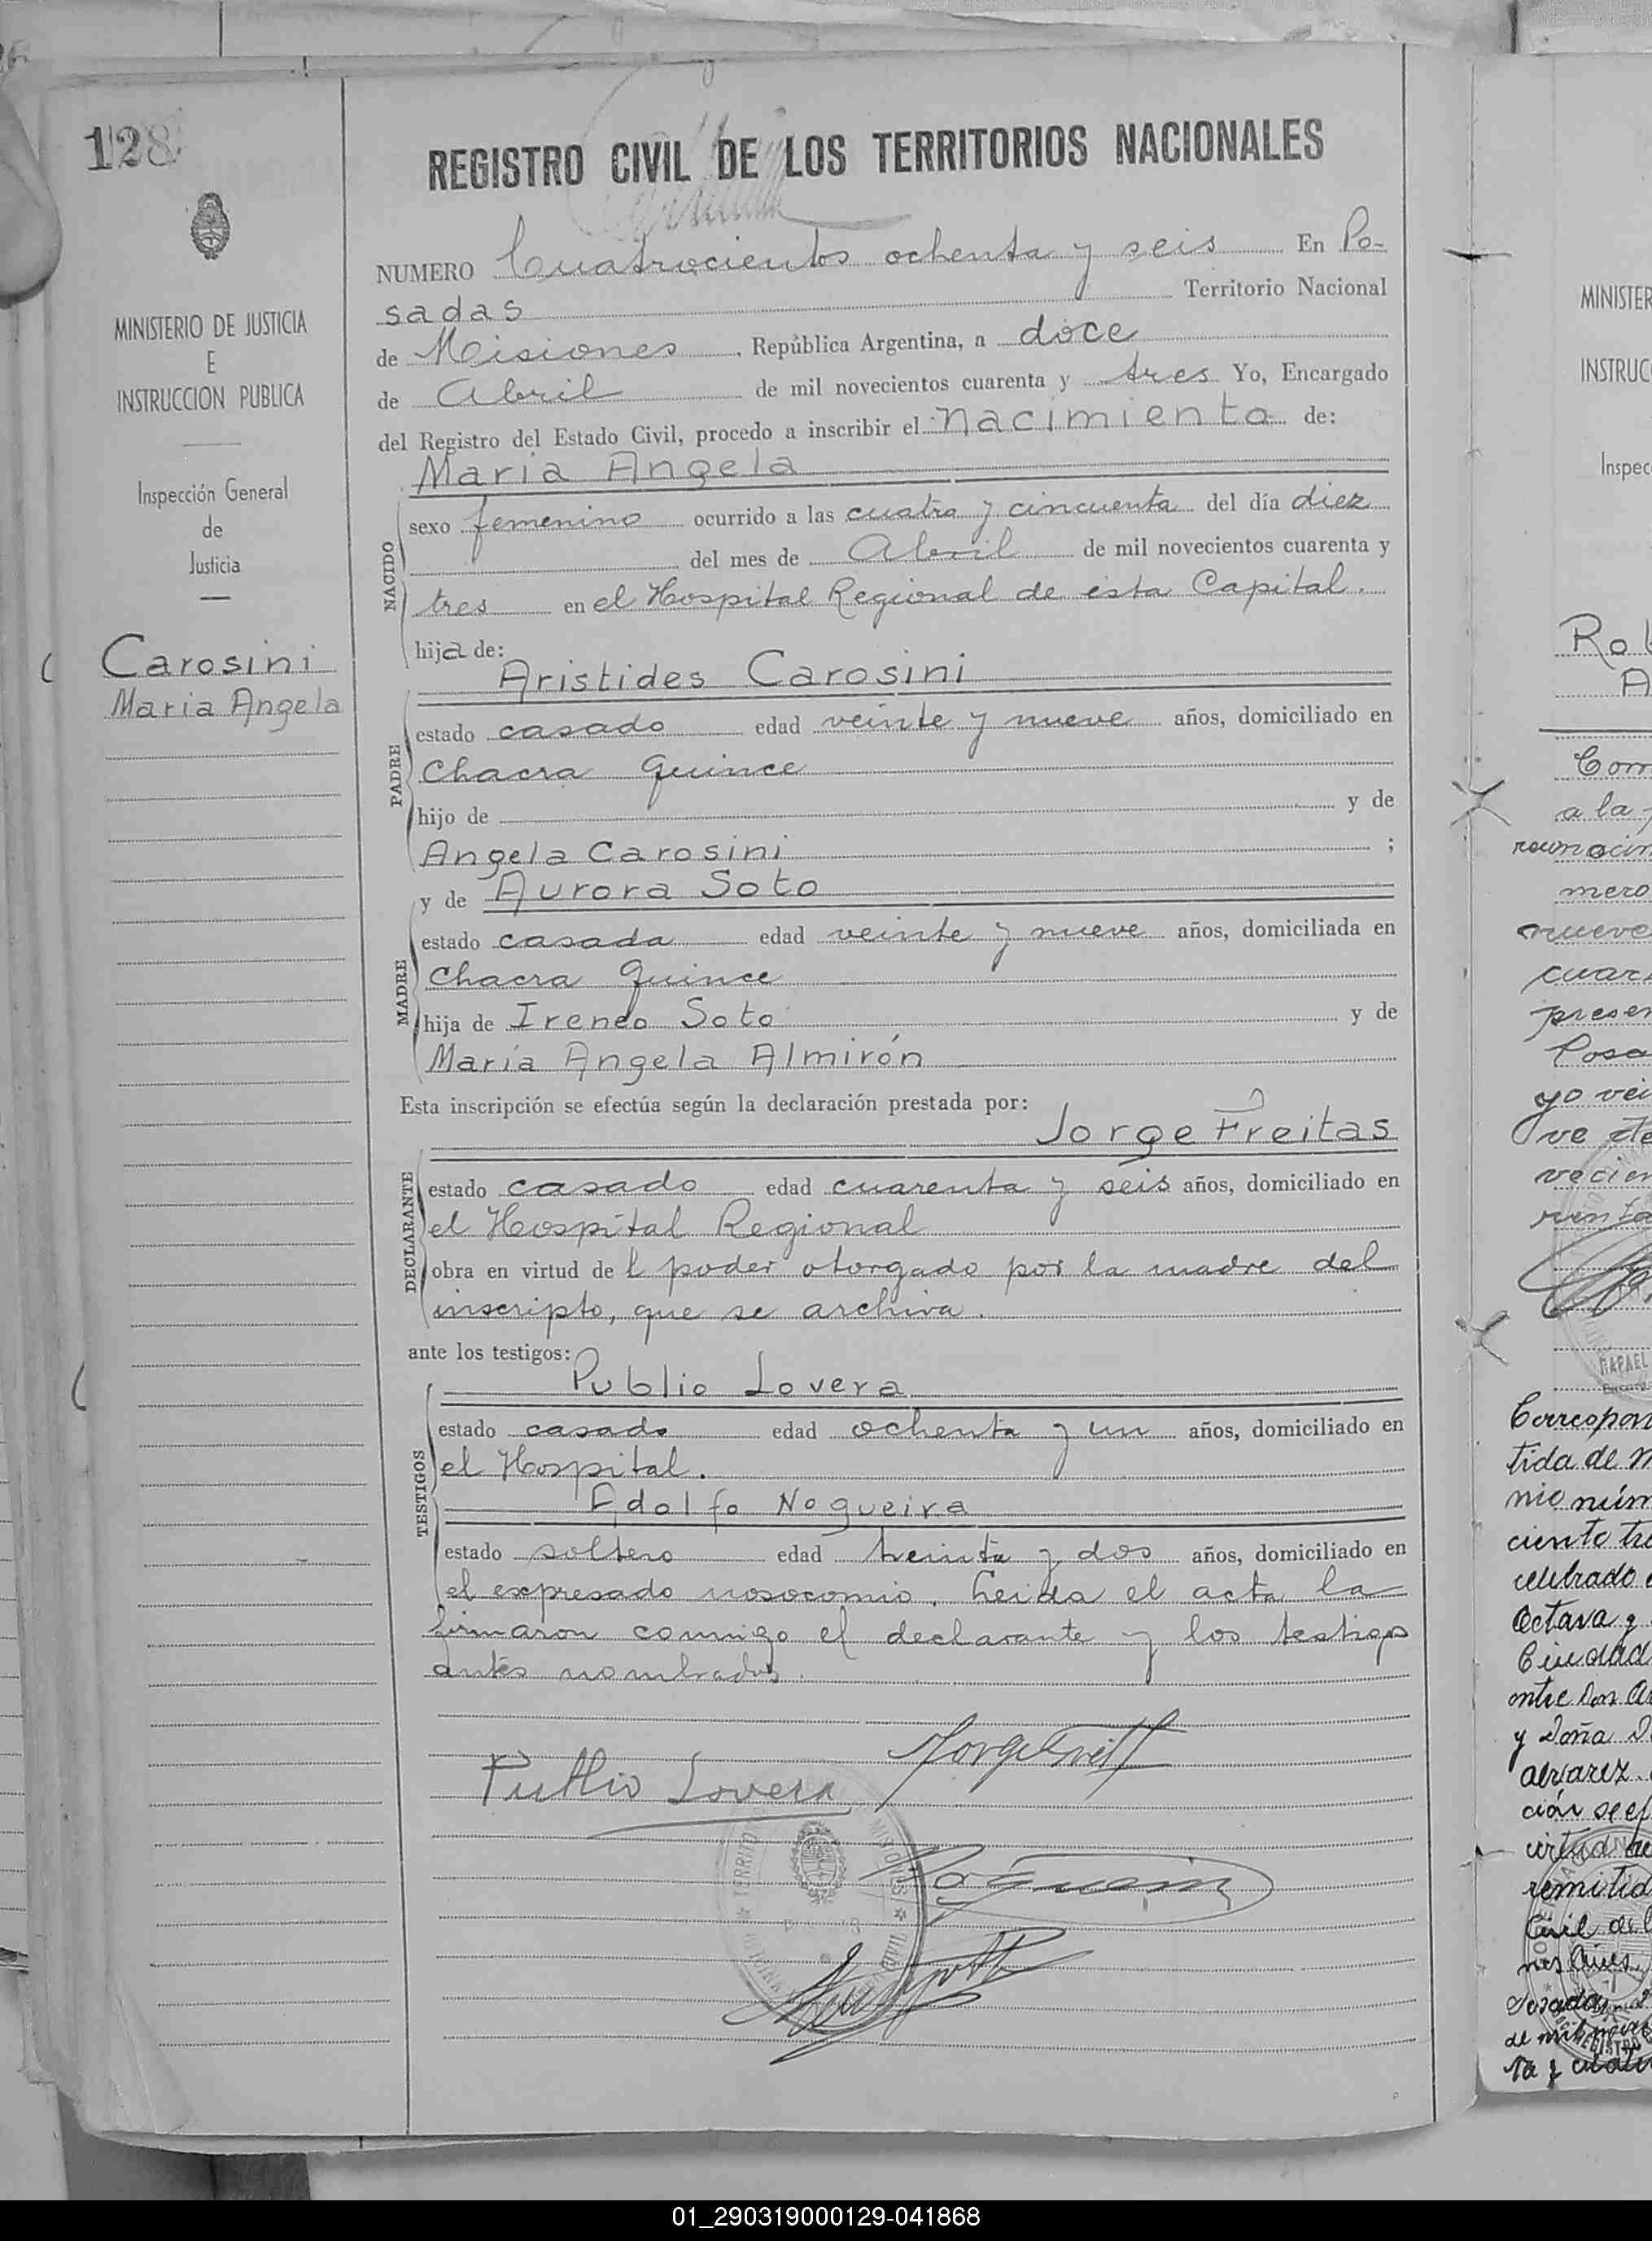 128
MINISTERIO DE JUSTICIA
E
INSTRUCCION PUBLICA
Inspección General
de
Justicia
Carosini
Maria Angela
REGISTRO CIVIL DE LOS TERRITORIOS NACIONALES
NUMERO Cuatrocientos ochenta y seis En Po-
sadas Territorio Nacional
de Misiones, República Argentina, a doce
de Abril de mil novecientos cuarenta y tres Yo, Encargado
del Registro del Estado Civil, procedo a inscribir el Nacimiento de:
Maria Angela
NACIDO
sexo femenino ocurrido a las cuatro y cincuenta del día diez
del mes de Abril de mil novecientos cuarenta y
tres en el Hospital Regional de esta Capital.
hija de:
Aristides Carosini
PADRE
estado casado edad veinte y nueve años, domiciliado en
Chacra quince
hijo de y de
Angela Carosini ;
y de Aurora Soto
MADRE
estado casada edad veinte y nueve años, domiciliada en
Chacra quince
hija de Ireneo Soto y de
María Angela Almirón
Esta inscripción se efectúa según la declaración prestada por:
Jorge Freitas
DECLARANTE
estado casado edad cuarenta y seis años, domiciliado en
el Hospital Regional
obra en virtud del poder otorgado por la madre del
inscripto, que se archiva.
ante los testigos:
Publio Lovera
TESTIGOS
estado casado edad ochenta y un años, domiciliado en
el Hospital.
Adolfo Nogueira
estado soltero edad treinta y dos años, domiciliado en
el expresado nosocomio. Leida el acta la
firmaron conmigo el declarante y los testigos
antes nombrados.
Publio Lovera
MINISTER
INSTRUC
Inspec
Rol
A
Com
a la
mero
nueve
cuar
presen
Posa
yo vei
ve de
vecien
renta
RAFAEL
Correspon
tida de m
nio núm
ciento tre
celebrado
Octava y
Ciudad
entre Don
y Doña D
alvarez.
ción se ef
virtud
remitid
Civil de
nos Aires.
Posadas
01_290319000129-041868